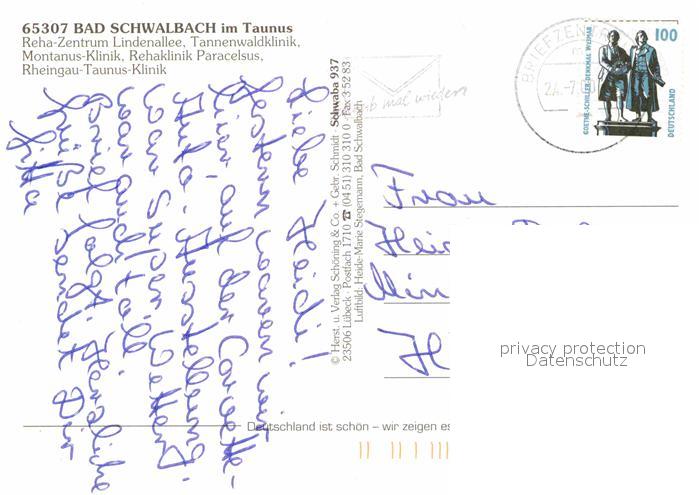 65307 BAD SCHWALBACH im Taunus
Reha-Zentrum Lindenallee, Tannenwaldklinik,
Montanus-Klinik, Rehaklinik Paracelsus,
Rheingau-Taunus-Klinik
Liebe Heidi!
Gestern waren wir
hier auf der Corvette-
Auto-Ausstellung.
War super. Wetter
war auch toll.
Brief folgt. Herzliche
Grüße sendet Dir
Gitta
© Herst. u. Verlag Schöning & Co. + Gebr. Schmidt · Schwaba 937
23506 Lübeck · Postfach 1710 ☎ (04 51) 310 310 0 · Fax 3 52 83
Luftbild: Heide-Marie Stegemann, Bad Schwalbach
b mal wieder
BRIEFZENTR
GOETHE-SCHILLER-DENKMAL WEIMAR
100
DEUTSCHLAND
Frau
Hei
Min
H
privacy protection
Datenschutz
Deutschland ist schön – wir zeigen es